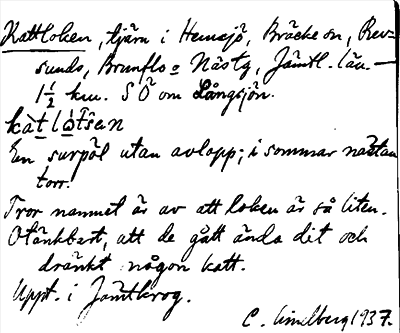 Kattloken, tjärn i Hemsjö, Bräcke sn, Rev-
sunds, Brunflo o Näs tg, Jämtl. län.—
1½ km. SÖ om Långsjön.
En surpöl utan avlopp; i sommar nästan
torr.
Tror namnet är av att loken är så liten.
Otänkbart, att de gått ända dit och
dränkt någon katt.
Uppt. i Jämtkrog.
C. Lindberg 1937.